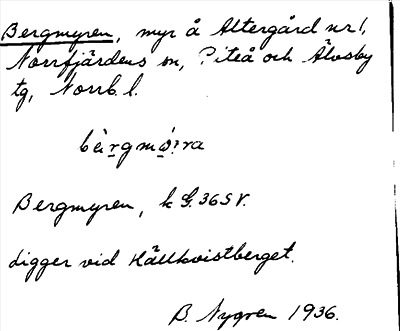 Bergmyren, myr å Altergård nr 1,
Norrfjärdens sn, Piteå och Älvsby
tg, Norrb. l.
Bergmyren, k G. 36 SV.
Ligger vid Hällkvistberget.
B. Nygren 1936.